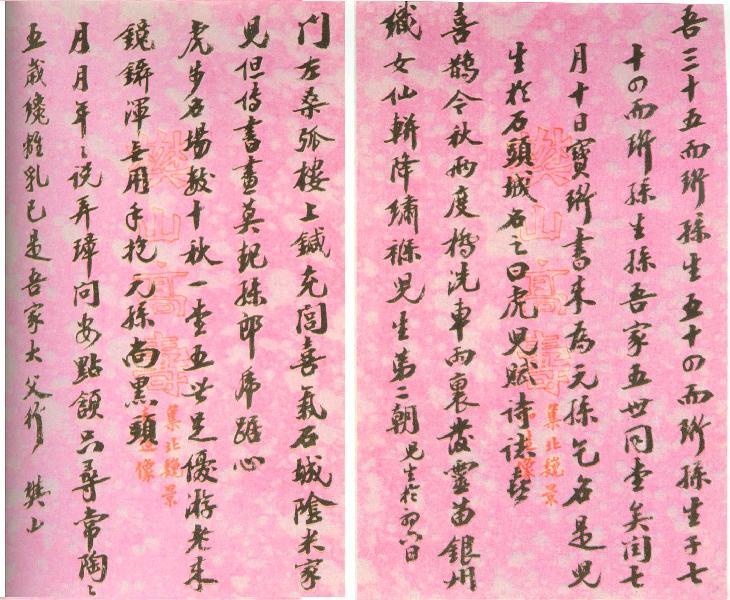 吾三十五而珩孫生五十四而珩孫生子七
十四而珩孫生孫吾家五世同堂矣閏七
月十日寶珩書來為元孫乞名是兒
生於石頭城名之曰虎兒賦詩誌喜
喜鵲今秋兩度橋洗車雨裏發靈苗銀州
織女仙軿降繡褓兒生第二朝 兒生於初八日
門左桑弧樓上鍼充閭喜氣石城陰米家
兒但傳書畫莫 孫郎虎踞心
虎步名場數十秋一堂五世足優游老來
鏡鑷渾無用手抱元孫尚黑頭
月月年々說弄璋問安點頷只尋常陶々
五歲纔離乳已是吾家大父行 樊山
樊山高壽
集北魏景
造像
樊山高壽
集北魏景
造像